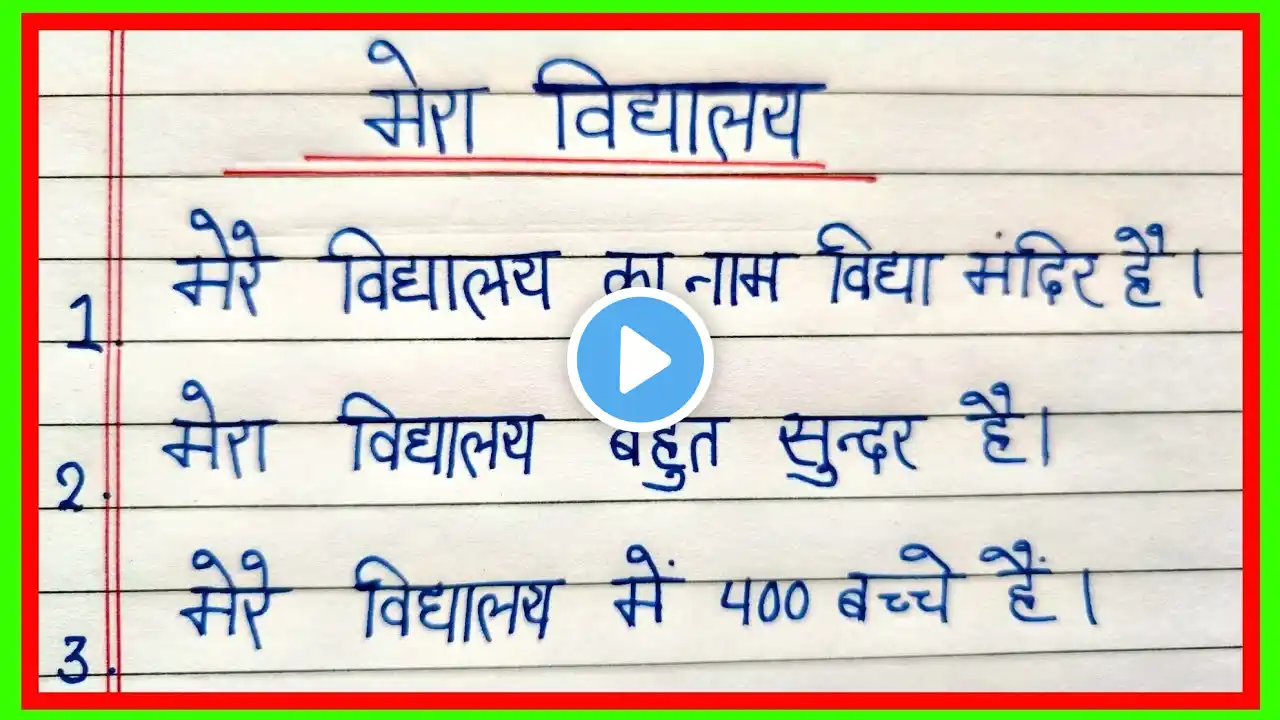 मेरा विद्यालय
1. मेरे विद्यालय का नाम विद्या मंदिर है।
2. मेरा विद्यालय बहुत सुन्दर है।
3. मेरे विद्यालय में 400 बच्चे हैं।